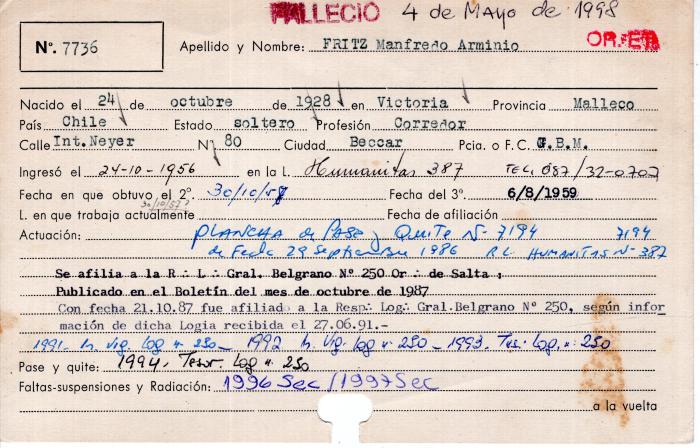 FALLECIO 4 de Mayo de 1998
Nº. 7736 Apellido y Nombre: FRITZ Manfredo Arminio OR.ET
Nacido el 24 de octubre de 1928 en Victoria Provincia Malleco
País Chile Estado soltero Profesión Corredor
Calle Int. Neyer Nº 80 Ciudad Beccar Pcia. o F.C. G.B.M.
Ingresó el 24-10-1956 en la L. Humanitas 387 TEL. 087/32-0707
Fecha en que obtuvo el 2º. 30/10/57 Fecha del 3º. 6/8/1959
30/10/57
L. en que trabaja actualmente Fecha de afiliación
Actuación: PLANCHA de PASE y QUITE Nº 7194 7194
de Fecha 29 Septiembre 1986 R L HUMANITAS Nº 387
Se afilia a la R∴ L∴ Gral. Belgrano Nº 250 Or∴ de Salta;
Publicado en el Boletín del mes de octubre de 1987
Con fecha 21.10.87 fue afiliado a la Resp∴ Log∴ Gral.Belgrano Nº 250, según infor
mación de dicha Logia recibida el 27.06.91.-
1991- Vig. Log n: 250- 1992 Vig. Log n: 250 - 1993. Tes. Log. n: 250
Pase y quite: 1994. Tesor. Log n: 250
Faltas-suspensiones y Radiación: 1996 Sec / 1997 Sec
a la vuelta